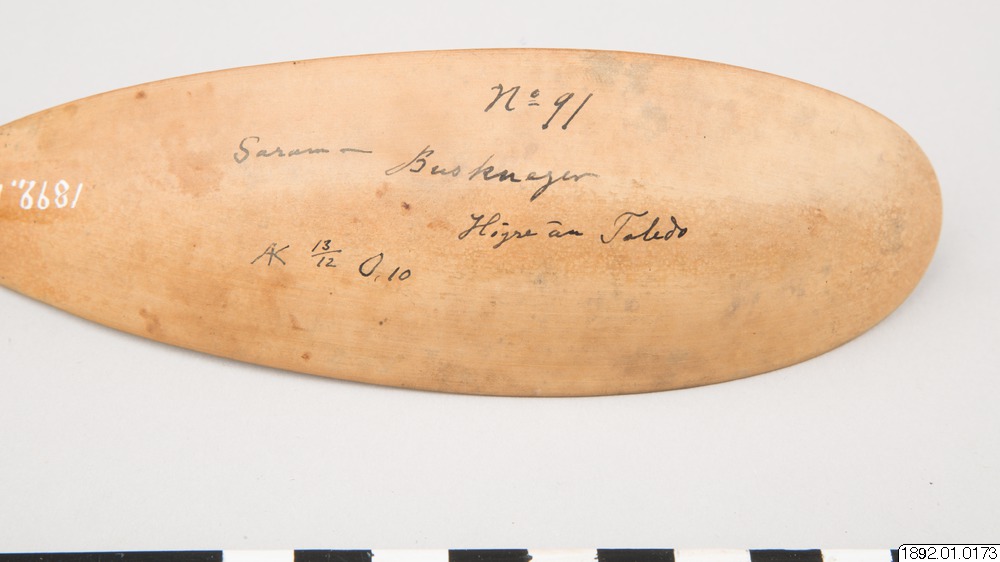 No 91
Saram —
Buskneger
Högre än Toledo
AK 13/12 O,10
1892.
1892.01.0173